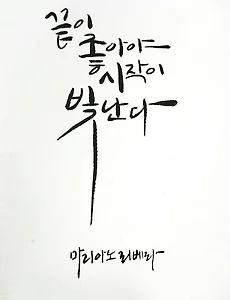 끝이
좋아야
시작이
빛난다
마리아노 리베라